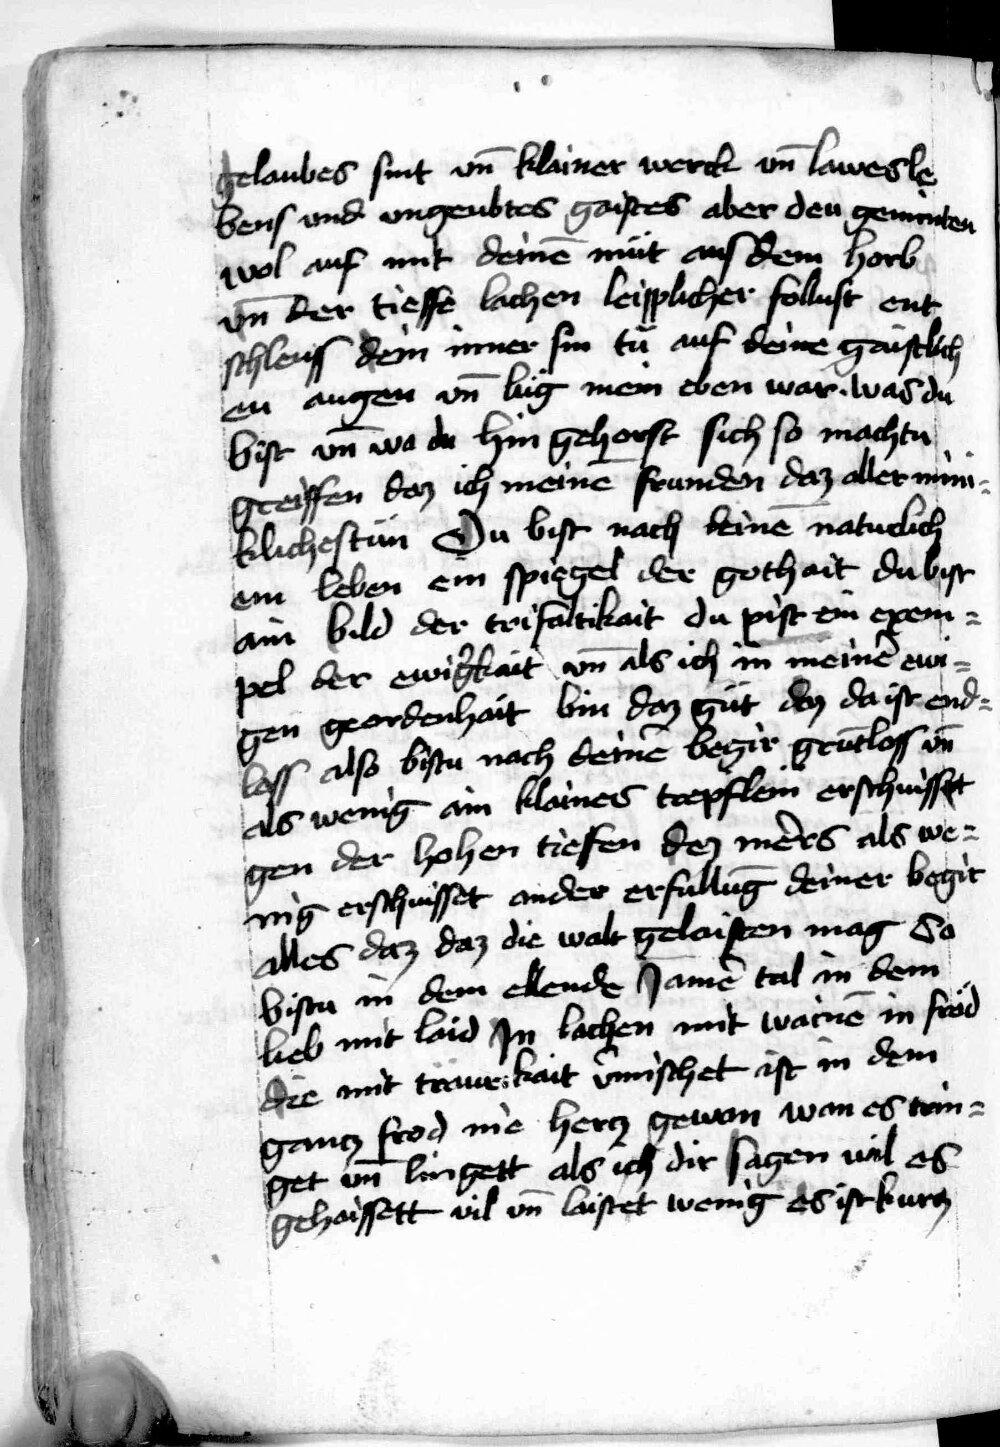 gelaubes sint vn̄ klainer werck vn̄ lawes le
bens vnd vngeubtes gaistes aber den geminten
wol auf mit deinē müt aus dem horb
vn̄ der tieffe lachen leipplicher follust ent
schleuss dein inner sin tü auf deine gaistlich
en augen vn̄ lüg mein eben war. was du
bist vn̄ wa du hin gehorst sich so machtu
greiffen daz ich meinē frunden daz aller mini=
klichest tün Du bist nach deinē naturlich
em leben ein spiegel der gothait du bist
ain bild der trifaltikait du pist ein exem=
pel der ewigkait vn̄ als ich in meinē ewi=
gen geordenhait bin daz güt daz da ist end=
loss also bistu nach deinē begir grūtloss vn̄
als wenig ain klaines trepflein erschuisset
gen der hohen tiefen dez mers als we=
nig erschuisset ander erfullūg deiner begir
alles daz daz die walt gelaisten mag So
bistu in dem ellende Jamē tal in dem
lieb mit laid In lachen mit wainē in fröd
die mit traurikait v̄mischet ist in dem
gancz frod nie hercz gewan wan es trin=
get vn̄ lingett als ich dir sagen wil es
gehaissett vil vn̄ laistet wenig es ist kurcz